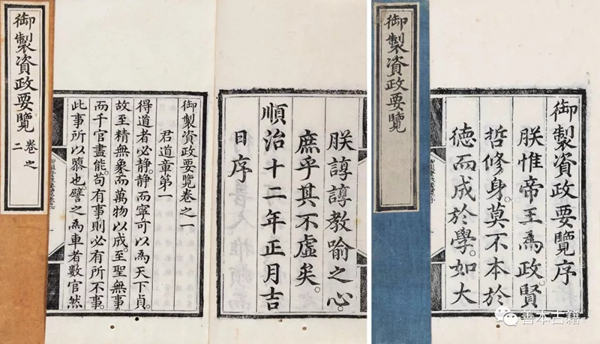 御製資政要覽序
朕惟帝王為政賢
哲修身莫不本於
德而成於學。如大
御製資政要覽
朕諄諄教喻之心。
庶乎其不虛矣。
順治十二年正月吉
日序
御製資政要覽卷之一
君道章第一
得道者必靜。靜而寧可以為天下貞。
故至精無象而萬物以成至聖無事
而千官盡能。苟有事則必有所不事。
此事所以隳也譬之為車者數官然
御製資政要覽 卷之二
善本古籍